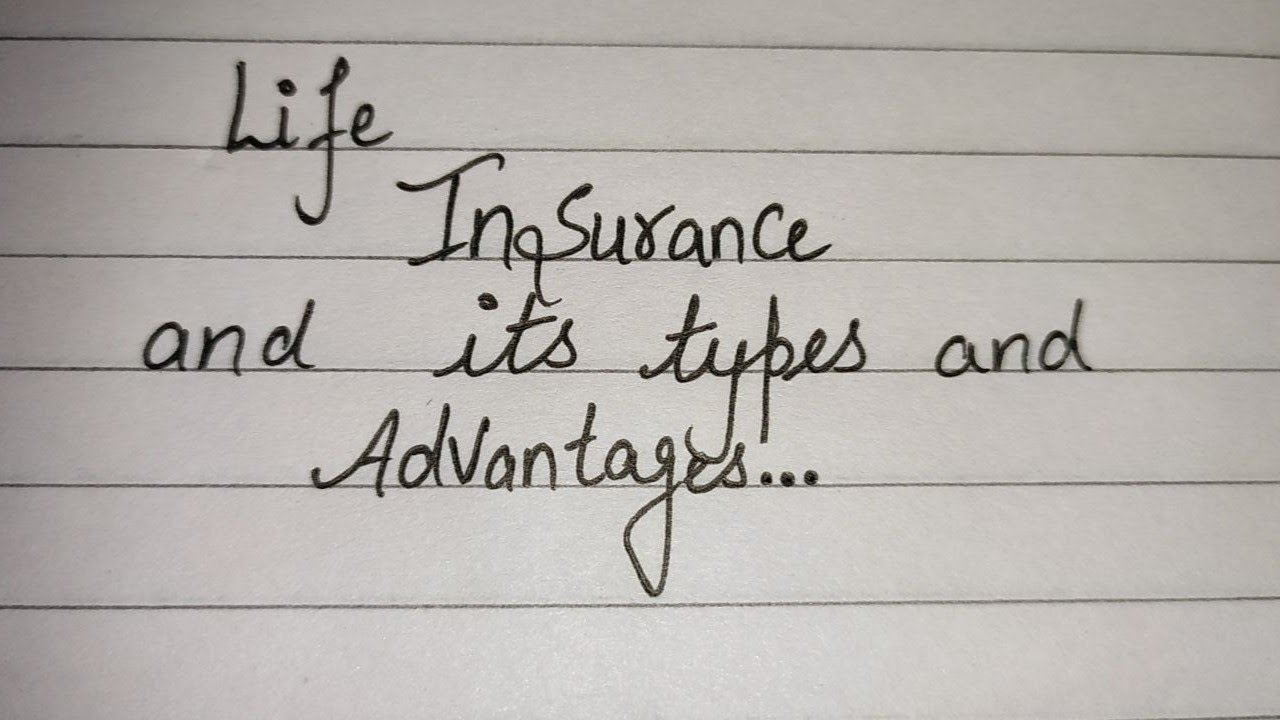 Life
Insurance
and its types and
Advantages...